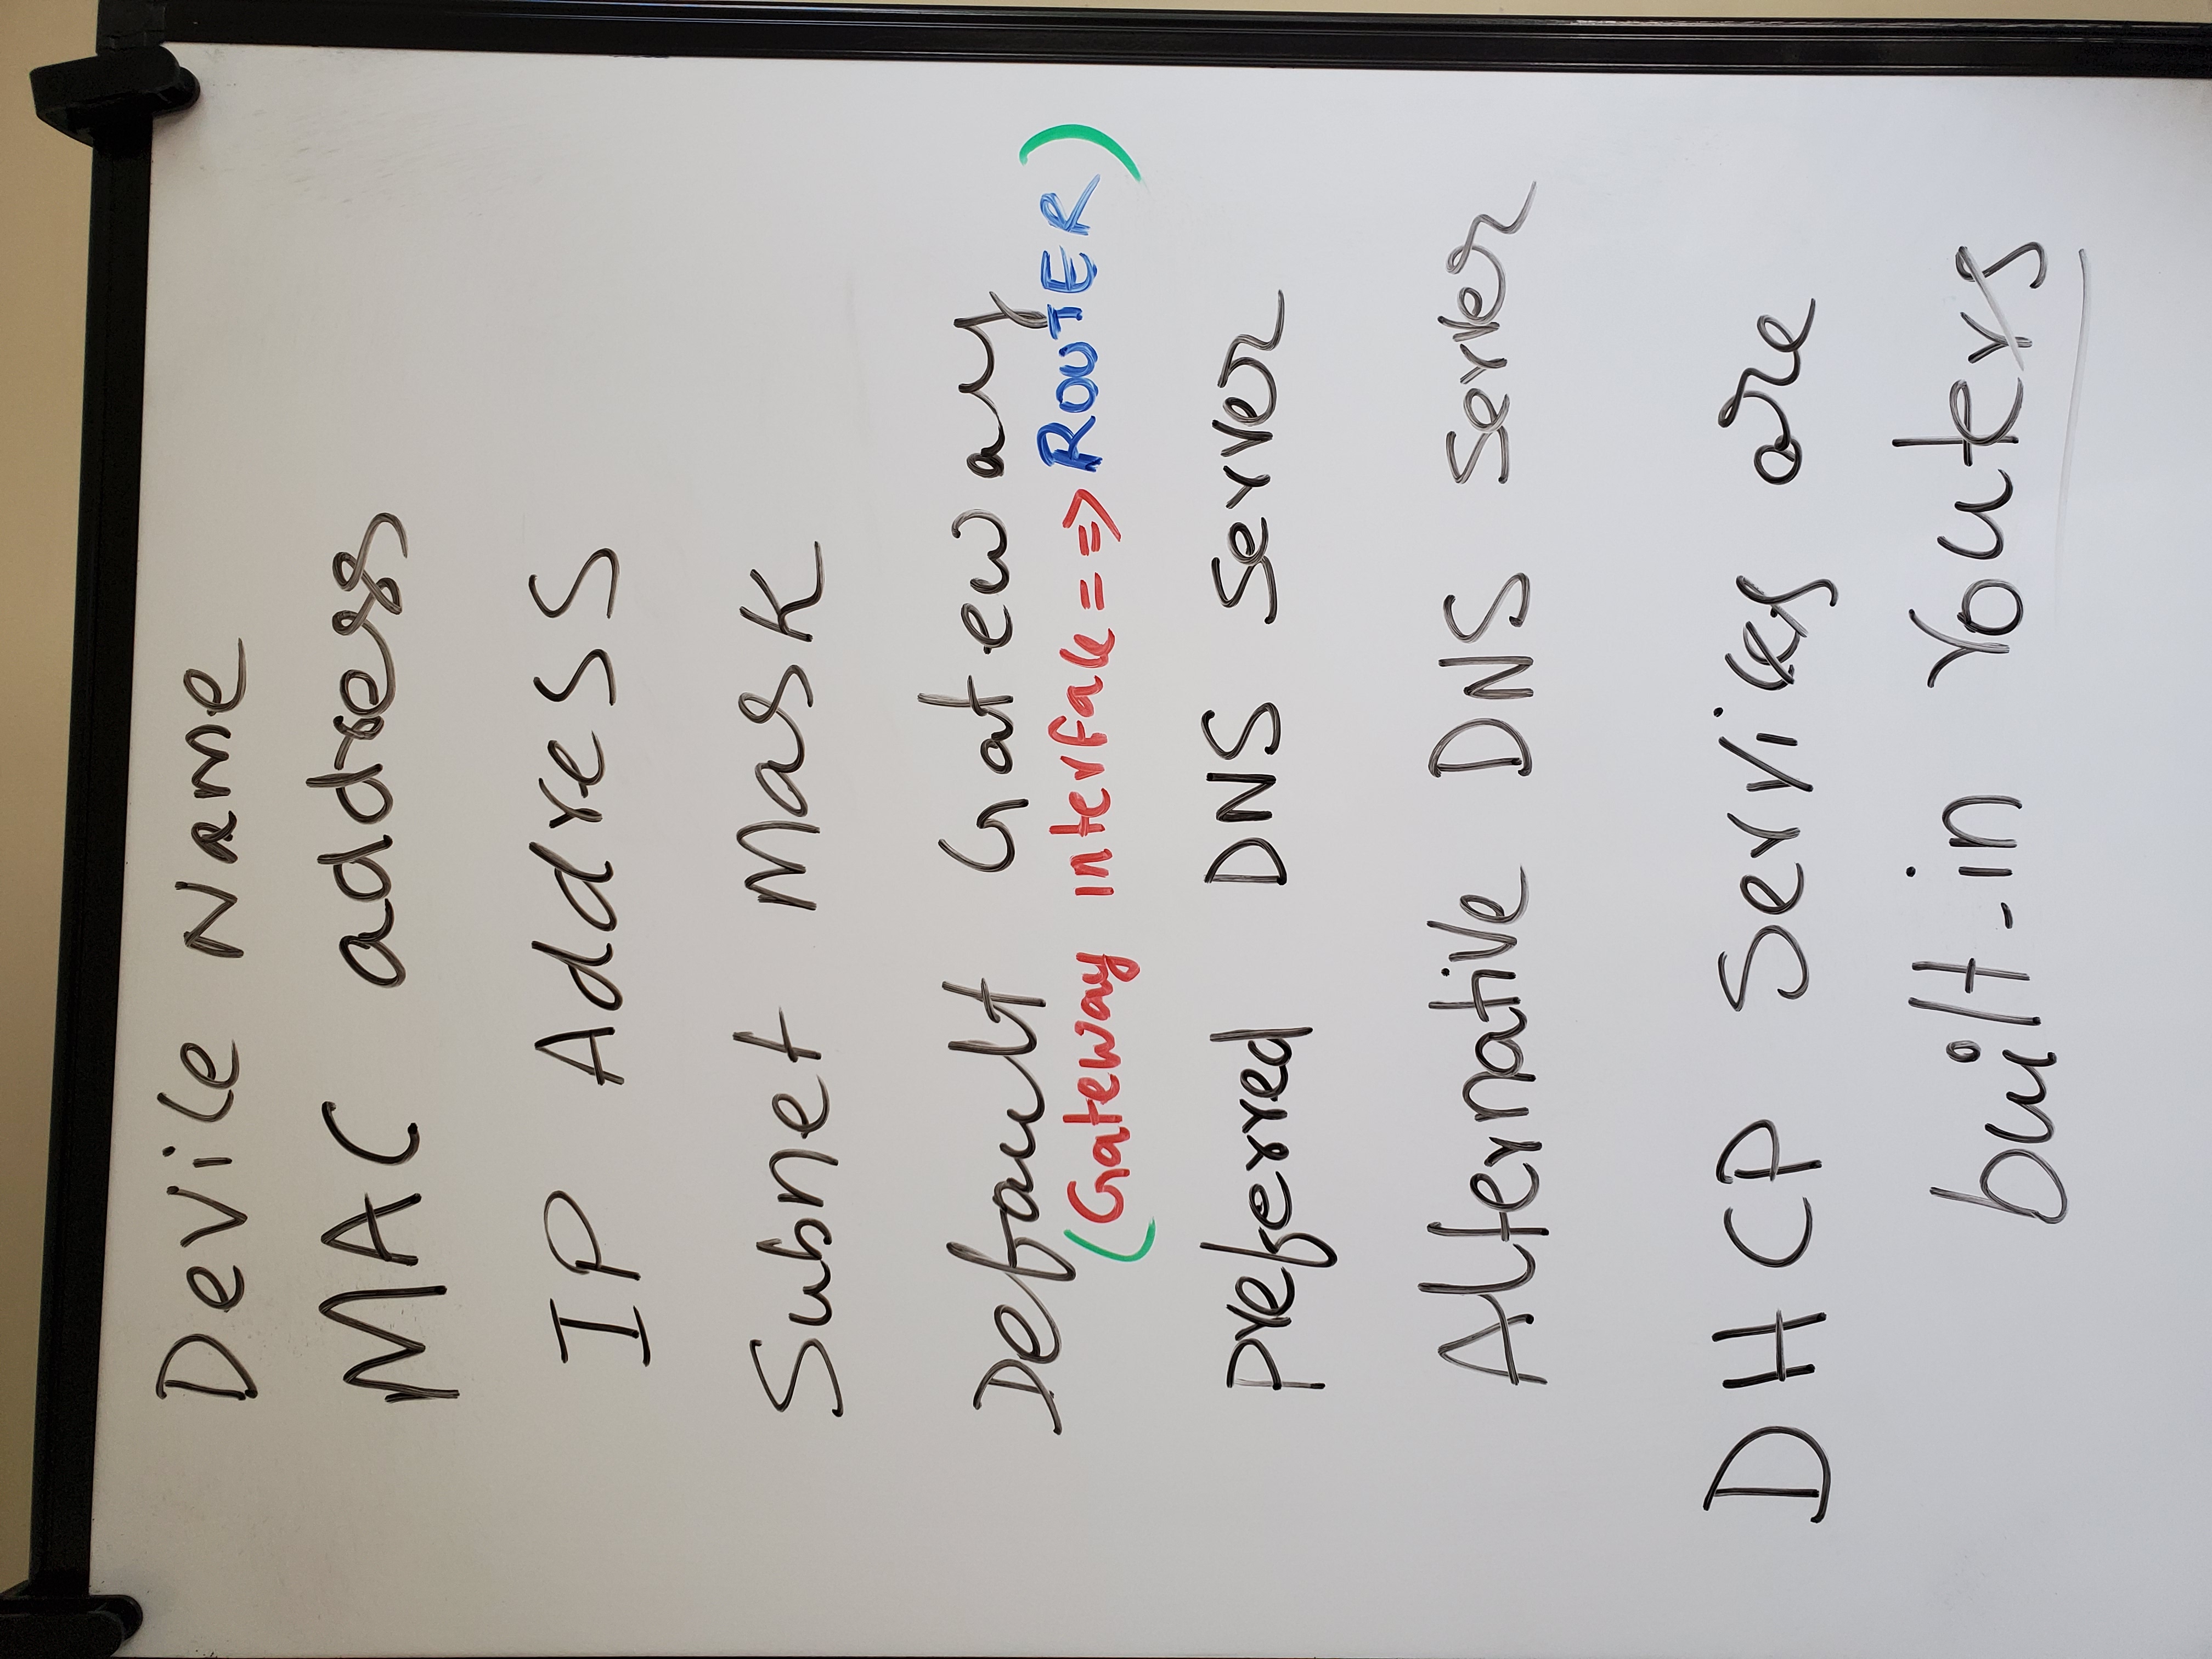 Device Name
MAC address
IP Address
Subnet Mask
Default Gateway
(Gateway interface ==> ROUTER)
Preferred DNS Server
Alternative DNS Server
DHCP Services are
built-in routers